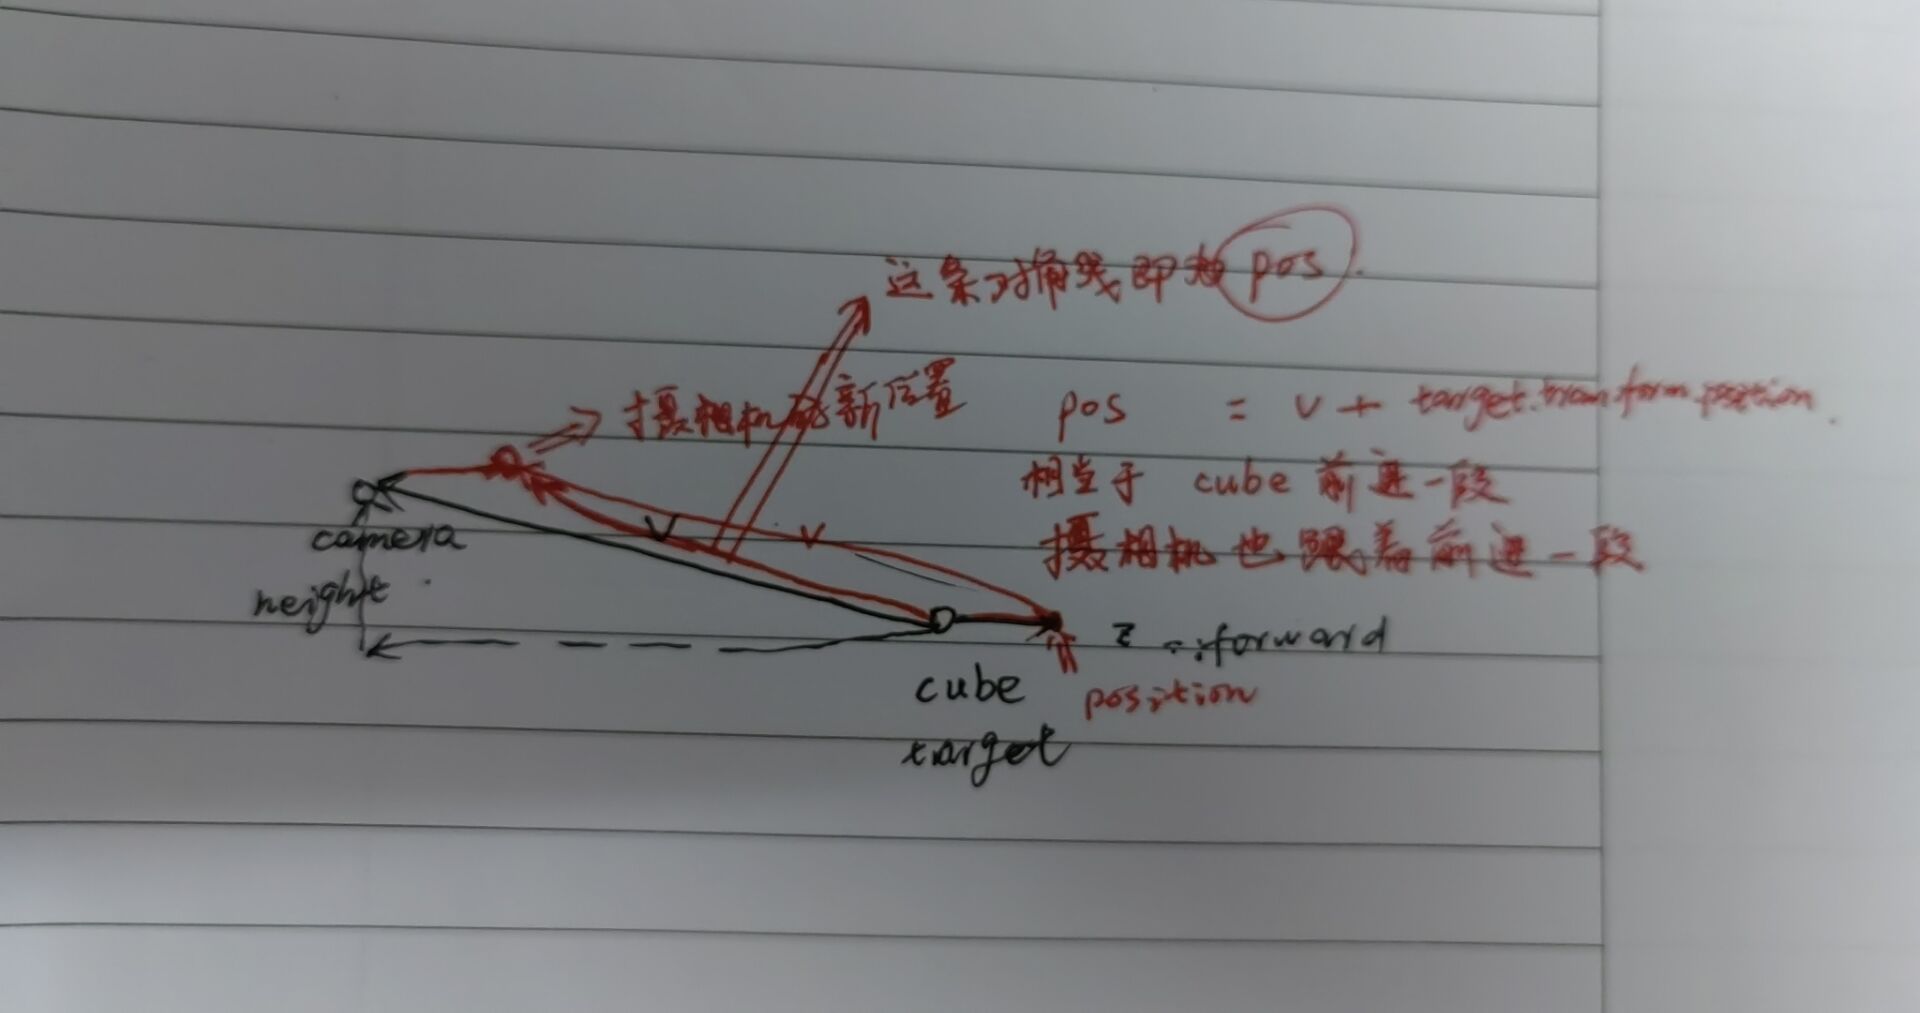 这条对角线即为 pos.
摄相机的新位置
pos = v + target.transform.position.
相当于 cube 前进一段
摄相机也跟着前进一段
V
v
camera
height
z : forward
position
cube
target